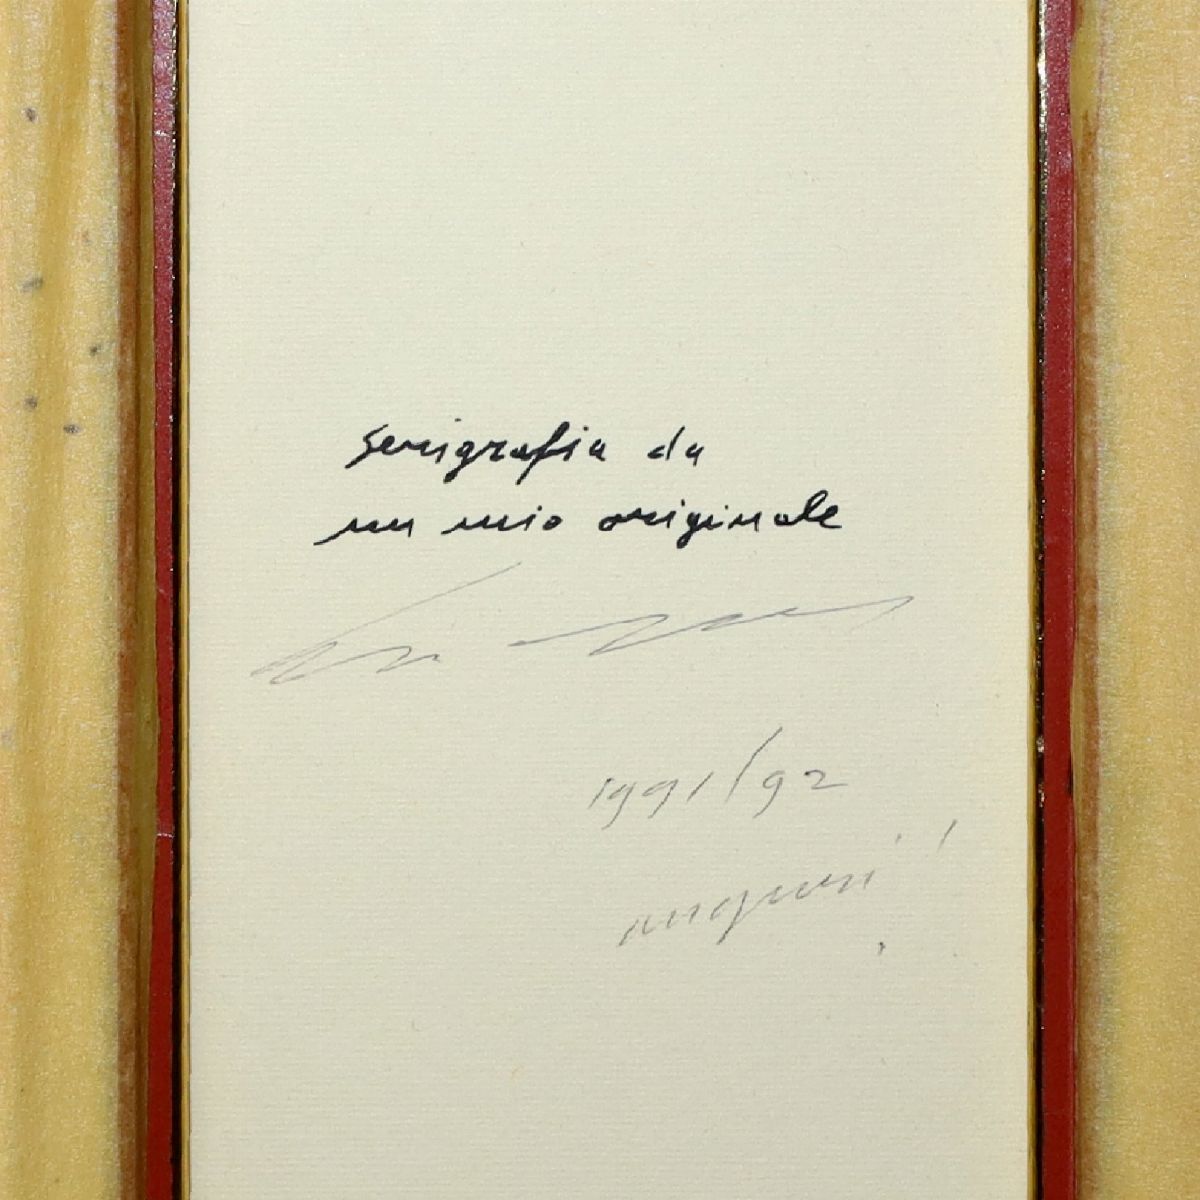 serigrafia da
un mio originale
1991/92
auguri!